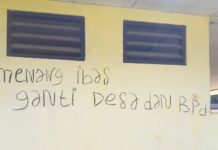 menang ibas
ganti Desa dan BPd